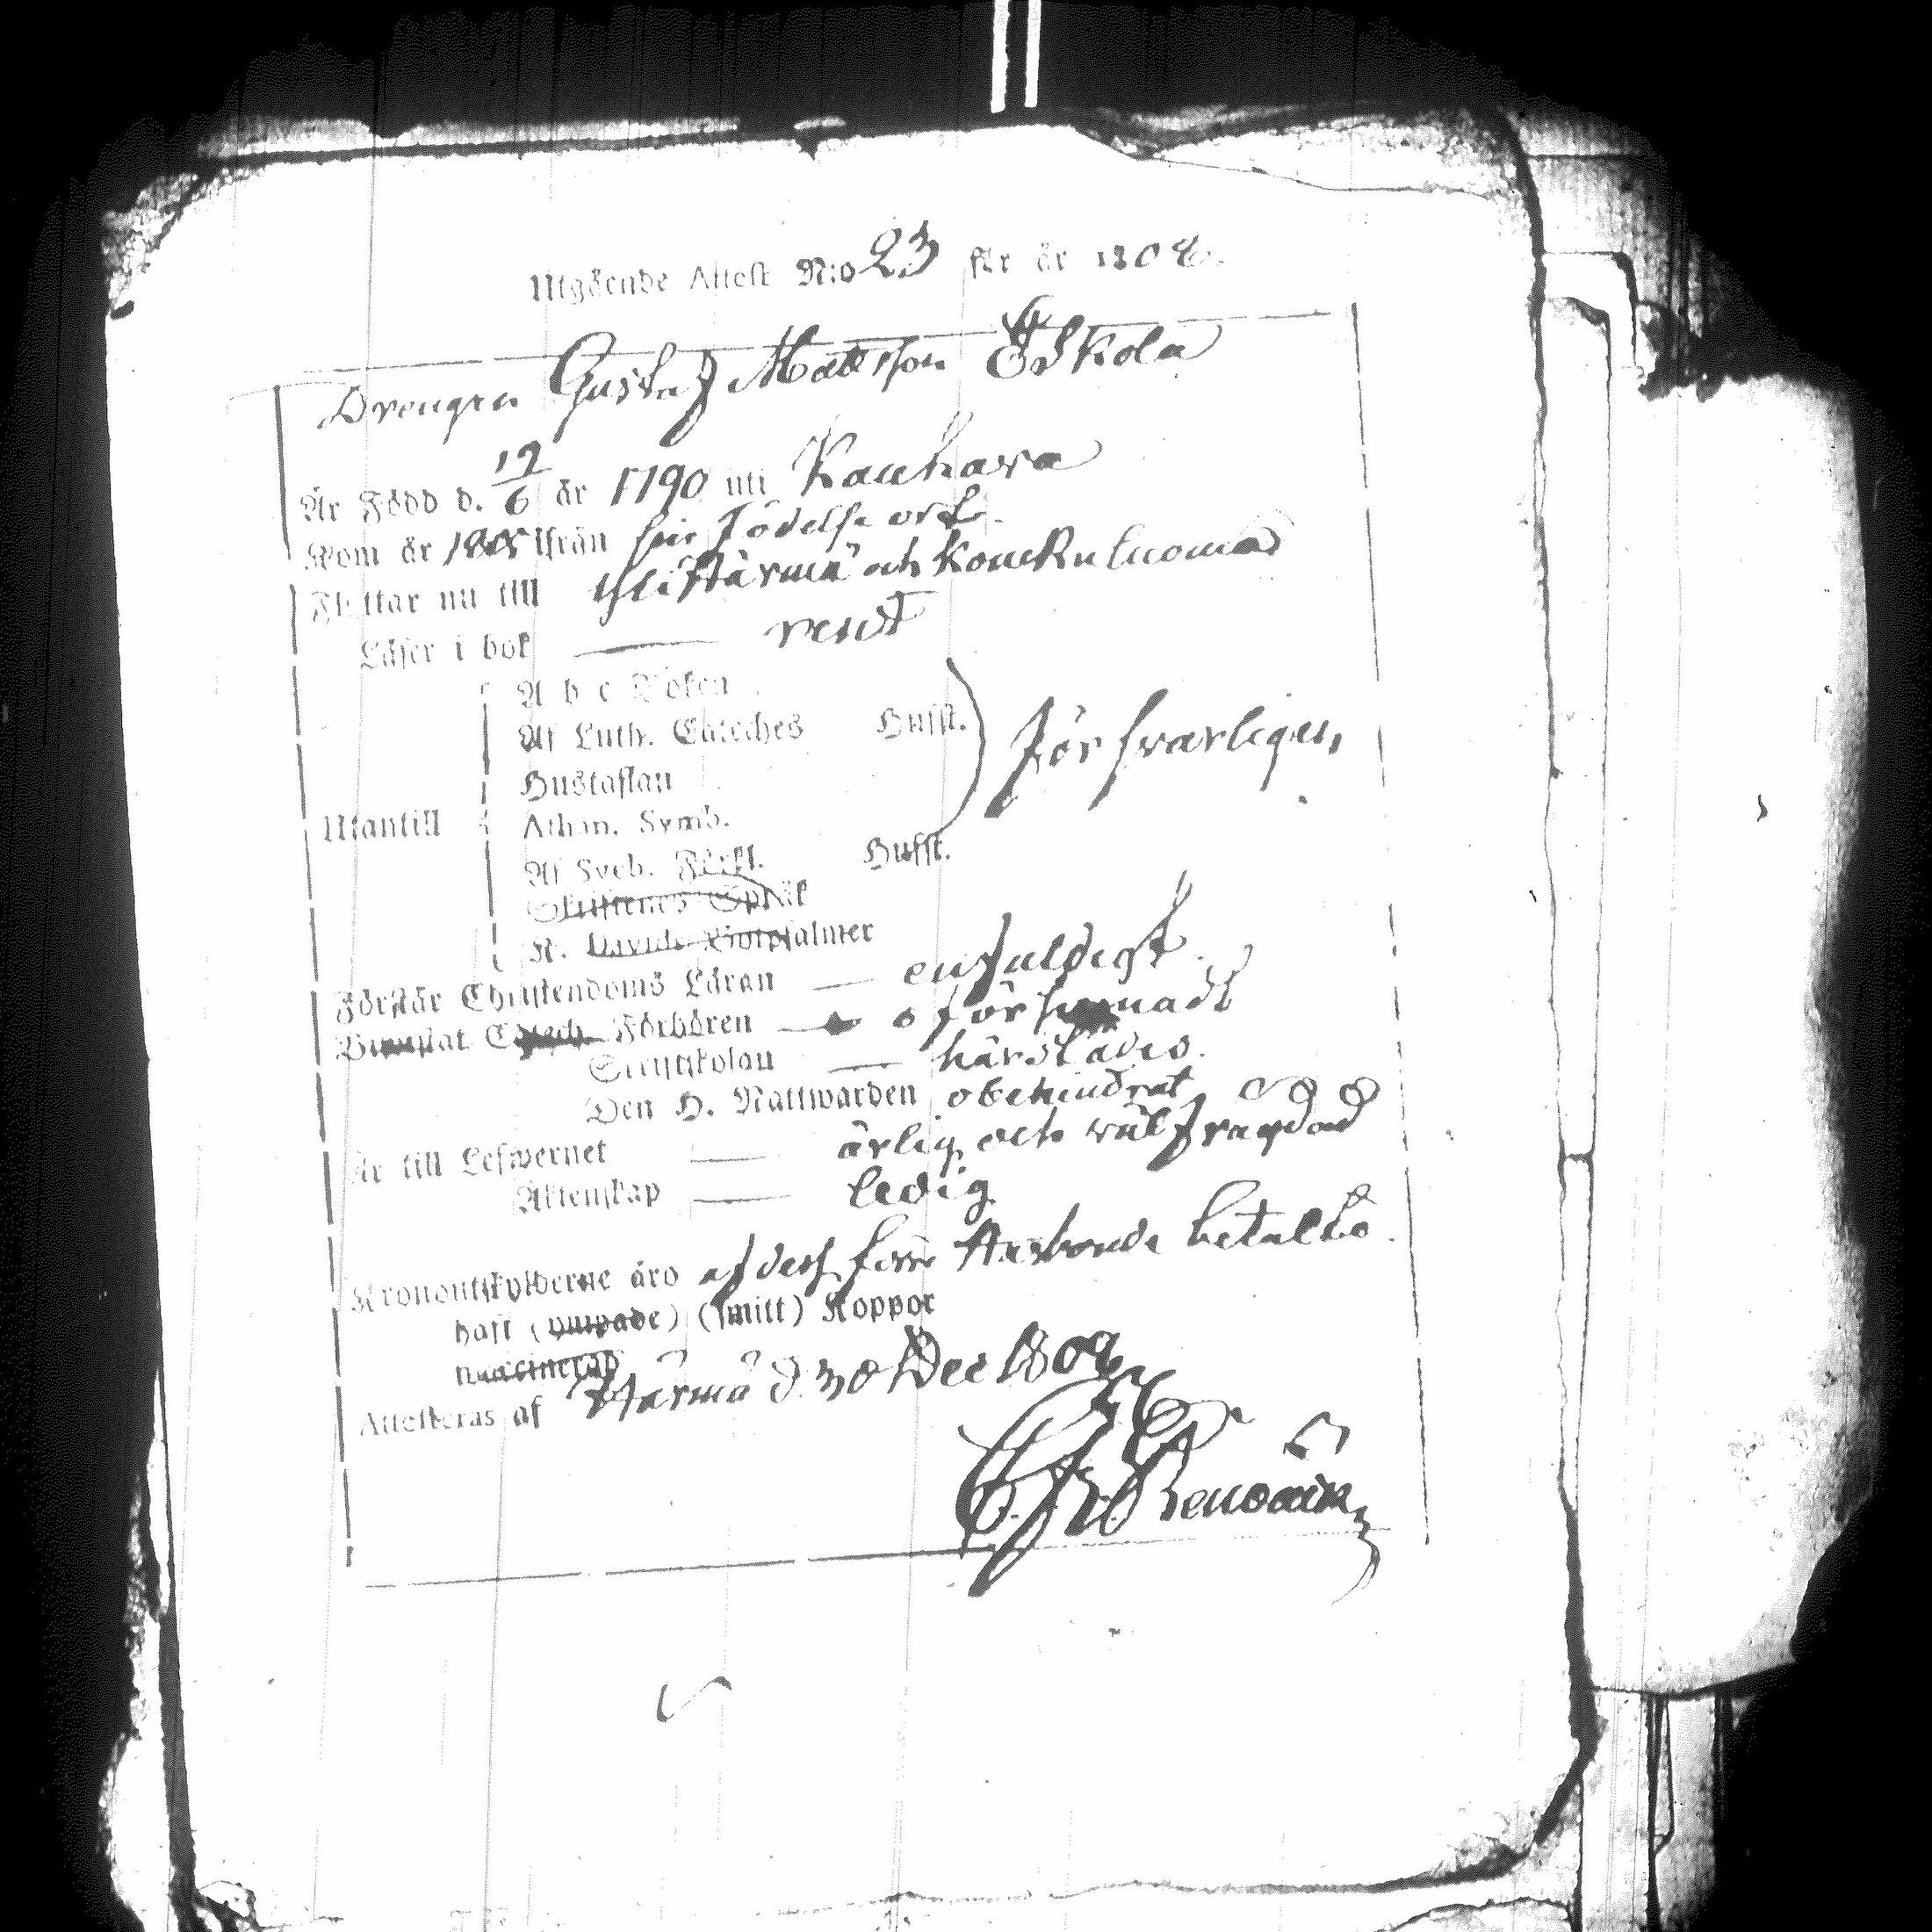 Utgående Attest N:o 23 för år 1808.
Drengen Gustaf Mattsson Eskola
Är Född d. 12/6 år 1790 uti Kauhava
Kom år ifrån sin Födelse ort.
Flyttar nu till Härmä och
Läser i bok — rent
A b c Boken
Af Luth. Cateches Hufst.
Hustaflan
Utantill
Athan. Symb.
Försvarligen,
Af Sveb. Förkl. Hufst.
Skriftenes Språk
K. Davids Botpsalmer
Förstår Christendoms Läran — enfaldigt.
Bevistat Catech. Förhören — oförsumadt
Skriftskolan — härstädes.
Den H. Nattwarden obehindrat
Är till Lefwernet — ärlig och wälfrägdad
Äktenskap — ledig
Kronoutskylderne äro af dess Husbonde betalta.
haft (ympade) (smitt) Koppor
vaccinerad
Attesteras af Härmä d. 30 Dec